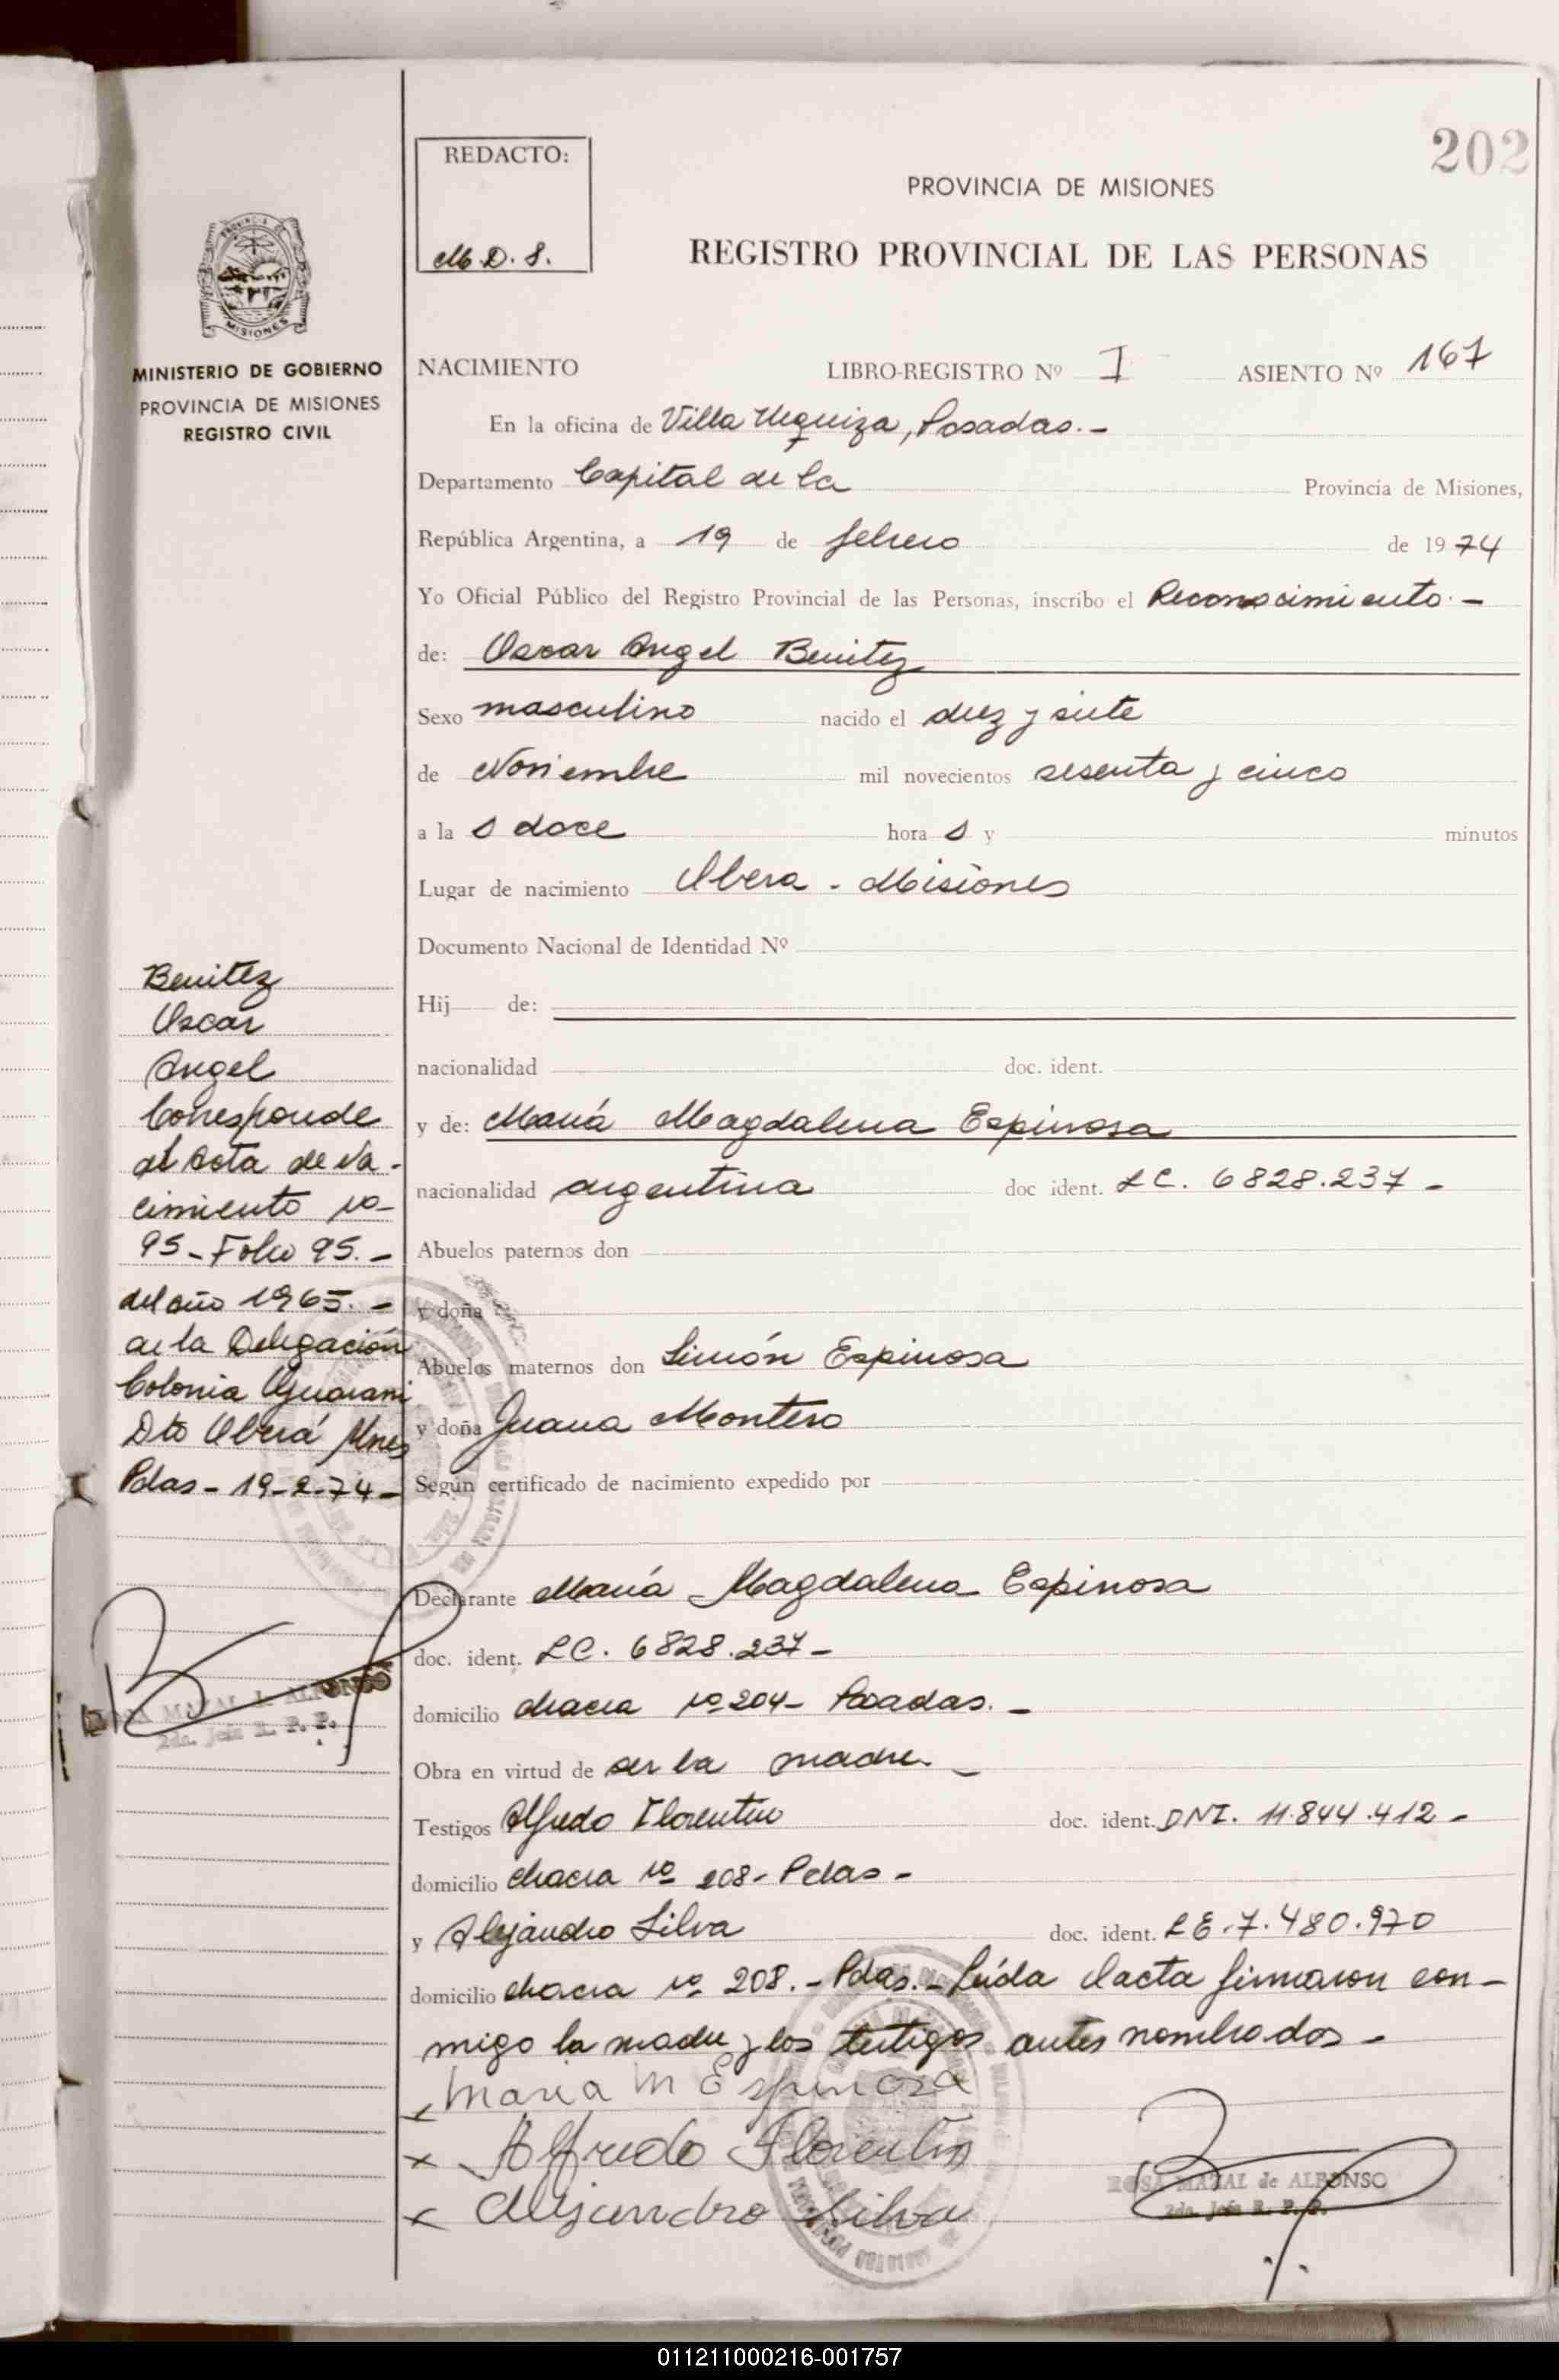 202
REDACTO:
M.D.S.
PROVINCIA DE MISIONES
REGISTRO PROVINCIAL DE LAS PERSONAS
MISIONES
MINISTERIO DE GOBIERNO
PROVINCIA DE MISIONES
REGISTRO CIVIL
NACIMIENTO LIBRO-REGISTRO Nº I ASIENTO Nº 167
En la oficina de Villa Urquiza, Posadas.-
Departamento Capital de la Provincia de Misiones,
República Argentina, a 19 de febrero de 1974
Yo Oficial Público del Registro Provincial de las Personas, inscribo el Reconocimiento.-
de: Oscar Angel Benitez
Sexo masculino nacido el diez y siete
de Noviembre mil novecientos sesenta y cinco
a las doce horas y minutos
Lugar de nacimiento Obera - Misiones
Documento Nacional de Identidad Nº
Hij de:
nacionalidad doc. ident.
y de: María Magdalena Espinosa
nacionalidad argentina doc ident. LC. 6828.237-
Abuelos paternos don
y doña
Abuelos maternos don Simón Espinosa
y doña Juana Montero
Según certificado de nacimiento expedido por
Declarante María Magdalena Espinosa
doc. ident. LC. 6828.237-
domicilio chacra nº 204- Posadas.-
Obra en virtud de ser la madre-
Testigos Alfredo Florentin doc. ident. DNI. 11.844.412-
domicilio chacra nº 208- Pdas-
y Alejandro Silva doc. ident. LE.7.480.970
domicilio chacra nº 208.- Pdas.- Leída el acta firmaron con-
migo la madre y los testigos antes nombrados-
Maria M Espinosa
x Alfredo Florentin
x Alejandro Silva
ROSA MATAL de ALFONSO
2da. Jefa R. P. P.
Benitez
Oscar
Angel
Corresponde
al Acta de Na-
cimiento nº
95-Folio 95.-
del año 1965.-
de la Delegación
Colonia Guarani
Dto Oberá Mnes
Pdas-19-2-74-
ROSA MATAL d. ALFONSO
2da. Jefa R. P. P.
011211000216-001757